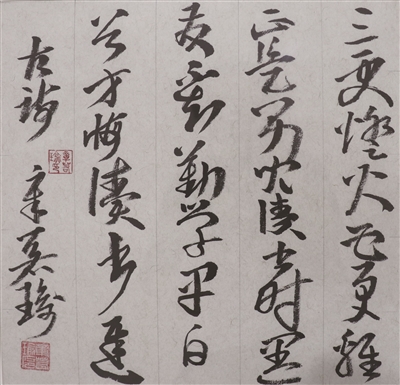 三更燈火五更雞
正是男兒讀書時黑
髮不知勤學早白
首方悔讀書遲
古詩